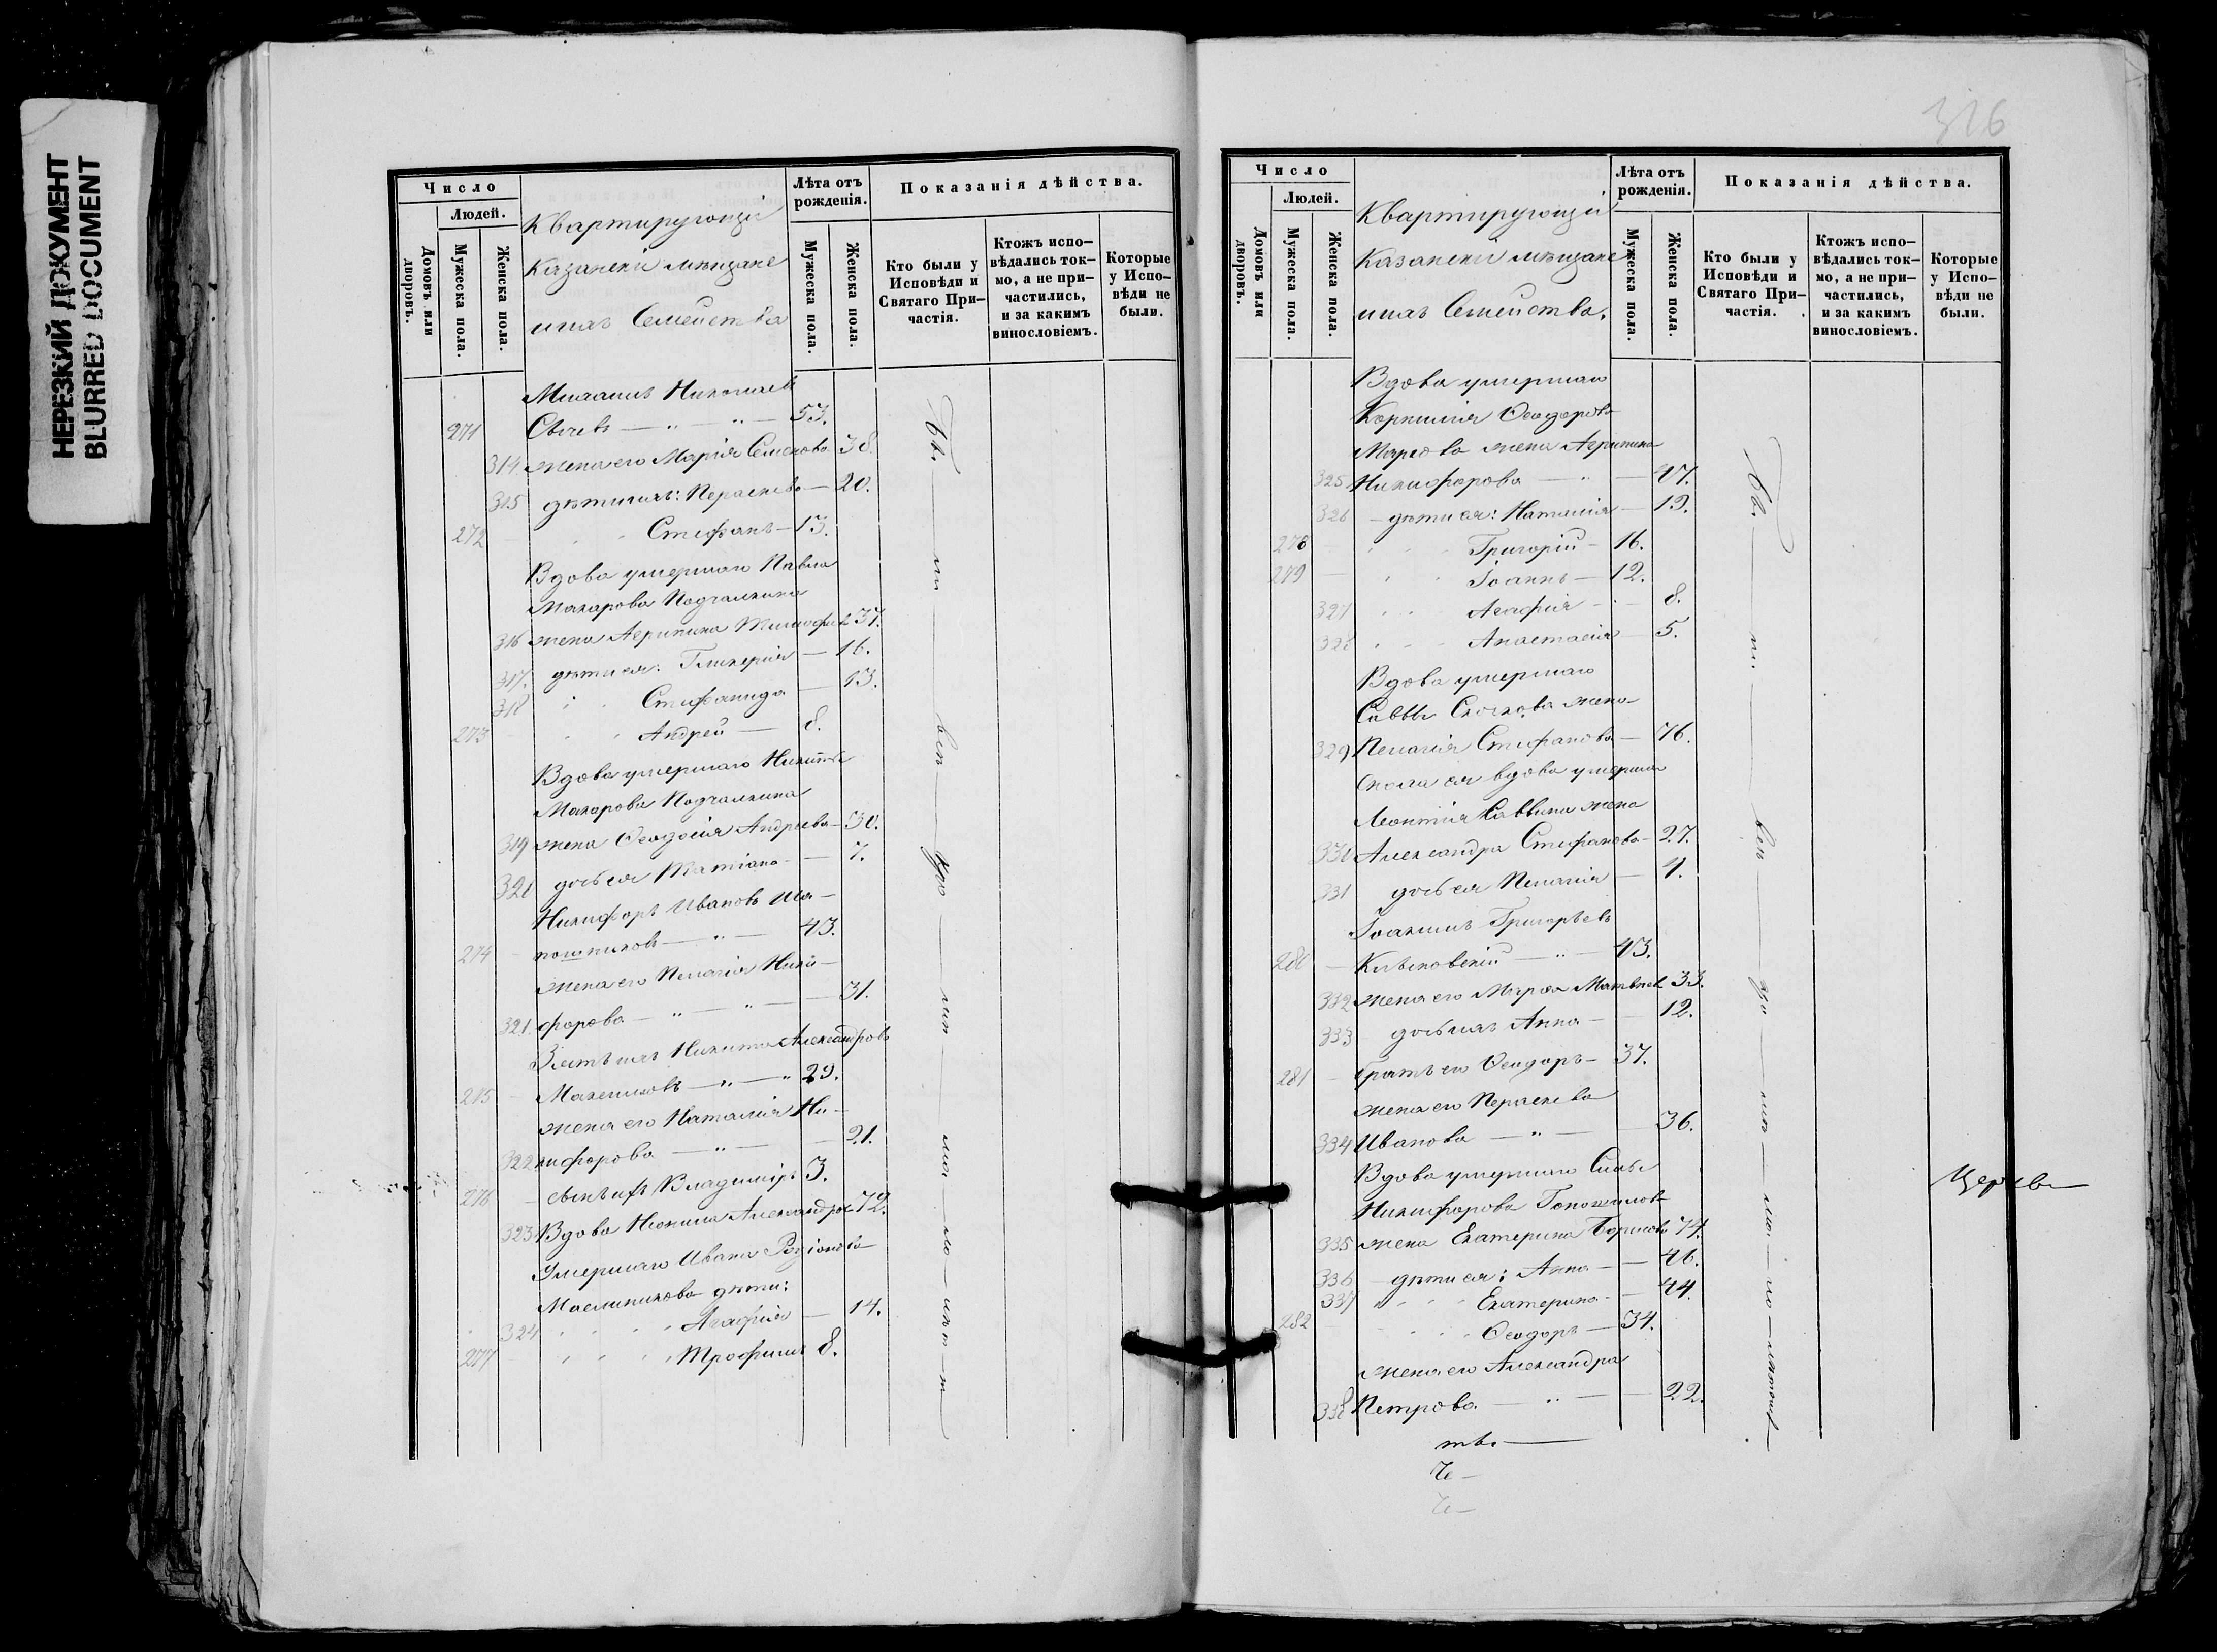 НЕРЕЗКИЙ ДОКУМЕНТ
BLURRED DOCUMENT
Число
Людей.
Домовъ или дворовъ.
Мужеска пола.
Женска пола.
Квартирующіи
Казанскіи мѣщане
и ихъ Семейства
Лѣта отъ рожденія.
Мужеска пола.
Женска пола.
Показанія дѣйства.
Кто были у Исповѣди и Святаго При-частія.
Ктожъ испо-вѣдались ток-мо, а не при-частились, и за какимъ винословіемъ.
Которые у Испо-вѣди не были.
Николаев
271 — " — " — 53.
314. жена его Марія Семенова 38.
315 дѣти ихъ: Параскева — 20.
272 Стефанъ — 13.
Вдова умершаго Павла
Макарова Подгалкина
316 жена Агрипина 37.
317. дѣти ея: Гликерія — 16.
318 Стефанида — 13.
273 Андрей — 8.
Вдова умершаго Никиты
Макарова Подгалкина
319 жена Ѳеодосія Андреева — 30.
320 дочь ея Татіана — 7.
Никифоръ Ивановъ Ша-
274 пошниковъ — " — 43.
жена его Пелагія Ники-
321. форова — " — " — 31.
Зять ихъ Никита Александровъ
275 — " — " 29.
жена его Наталія Ни-
322 кифорова — " — 21.
276 сынъ ихъ Владиміръ 3.
323 Вдова Александрова 72.
Умершаго Ивана Родіонова
Масленикова дѣти:
324 Агафія — 14.
277 Трофимъ 8.
326
Число
Людей.
Домовъ или дворовъ.
Мужеска пола.
Женска пола.
Квартирующіи
Казанскіи мѣщане
и ихъ Семейства.
Лѣта отъ рожденія.
Мужеска пола.
Женска пола.
Показанія дѣйства.
Кто были у Исповѣди и Святаго При-частія.
Ктожъ испо-вѣдались ток-мо, а не при-частились, и за какимъ винословіемъ.
Которые у Испо-вѣди не были.
Вдова умершаго
Корнилія Ѳеодорова
жена Агрипина
325 Никифорова — " — 47.
326 дѣти ея: Наталія — 19.
278 Григорій — 16.
279 Іоаннъ — 12.
327 Агафія — 8.
328 Анастасія — 5.
Вдова умершаго
Саввы жена
329 Пелагія Стефанова — 76.
Сноха ея вдова умершаго
Леонтія Саввина жена
330 Александра Стефанова — 27.
331 дочь ея Пелагія — 4.
Іоакимъ Григорьевъ
280 — " — 43.
332 жена его Марѳа Матвѣева 33.
333 дочь ихъ Анна — 12.
281 братъ его Ѳеодоръ — 37.
жена его Параскева
334 Иванова — " — 36.
Вдова умершаго Силы
Никифорова
335 жена Екатерина Борисова 74.
336 дѣти ея: Анна — 46.
337 Екатерина — 44.
282 Ѳеодоръ — 34.
жена его Александра
338 Петрова — " — 22.
тв.
Че —
Че —